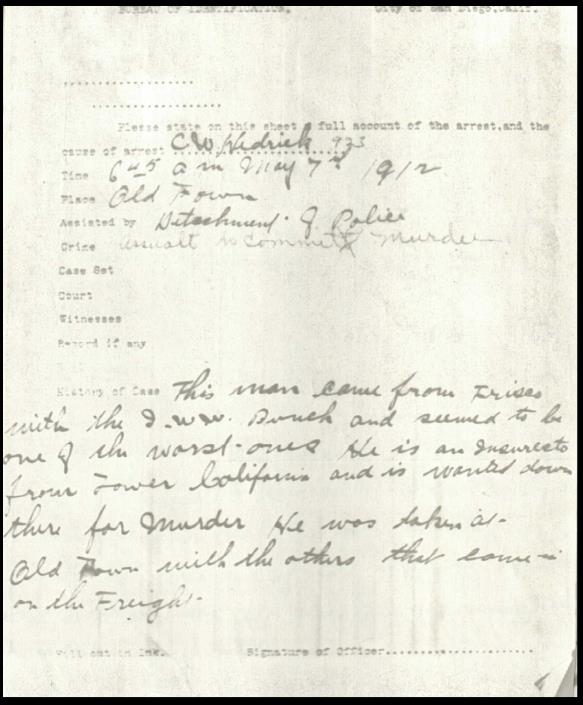 BUREAU OF IDENTIFICATION. City of San Diego, Calif.
....................
....................
Please state on this sheet a full account of the arrest, and the
cause of arrest C W Hedrick 933
Time 6 45 a m May 7th 1912
Place Old Town
Assisted by Detachment of Police
Crime assalt to committ Murder
Case Set
Court
Witnesses
Record if any
History of Case This man came from Frisco
with the I.W.W. Bunch and seemed to be
one of the worst ones He is an Insurecto
from Lower California and is wanted down
there for Murder He was taken at
Old Town with the others that come
on the Freight.
Fill out in Ink. Signature of Officer.......................